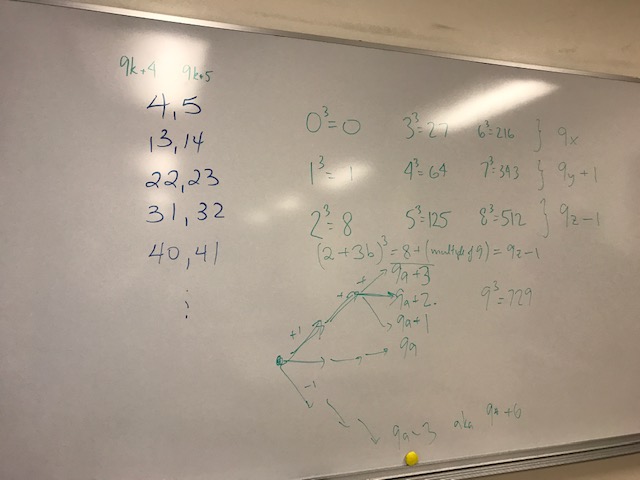 9k+4 9k+5
4,5
13,14
22,23
31,32
40,41
⋮
0³=0 3³=27 6³=216 } 9x
1³=1 4³=64 7³=343 } 9y+1
2³=8 5³=125 8³=512 } 9z-1
(2+3b)³=8+(multiple of 9)=9z-1
9³=729
+ 9a+3
+ 9a+2.
9a+1
+1
9a
-1
9a-3 aka 9a+6